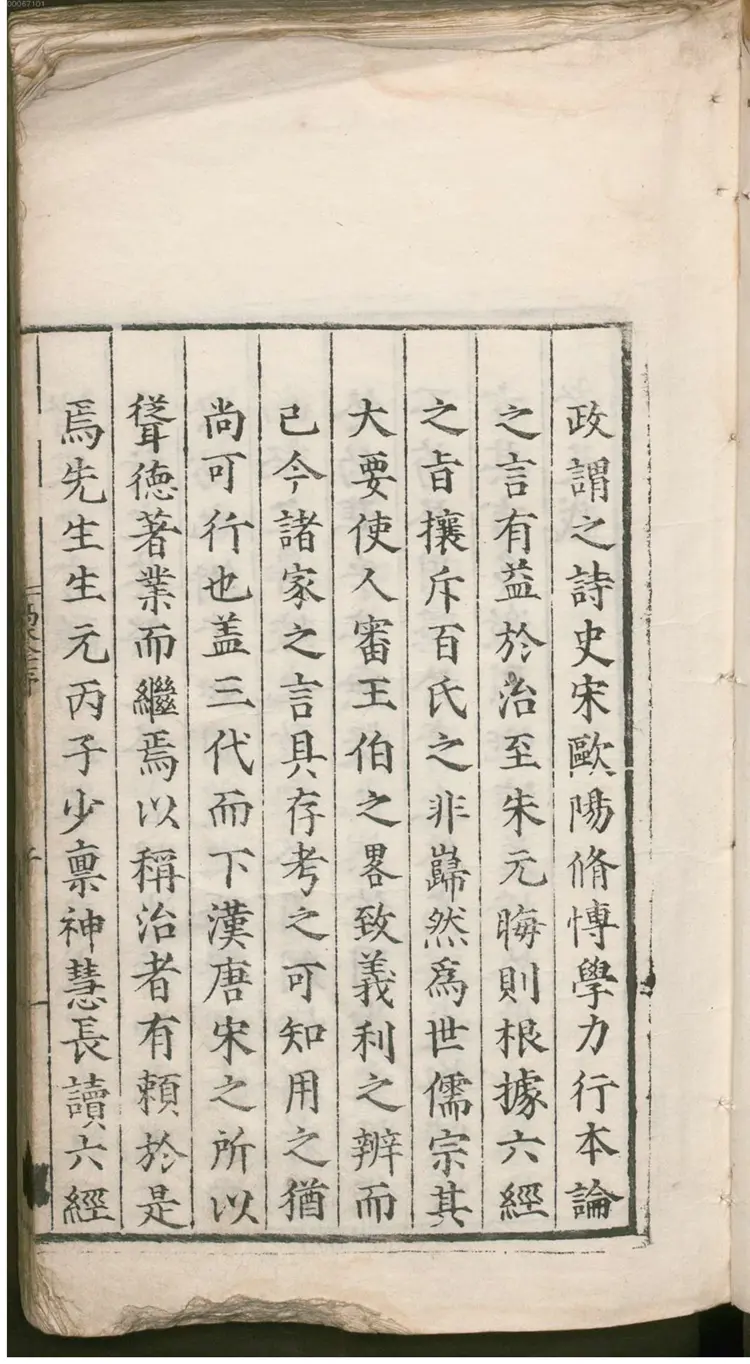 00067101
政謂之詩史宋歐陽脩愽學力行本論
之言有益於治至朱元晦則根據六經
之㫖攘斥百氏之非巋然爲世儒宗其
大要使人審王伯之畧致義利之辨而
己今諸家之言具存考之可知用之猶
尚可行也盖三代而下漢唐宋之所以
聳德著業而繼焉以稱治者有頼於是
焉先生生元丙子少禀神慧長讀六經